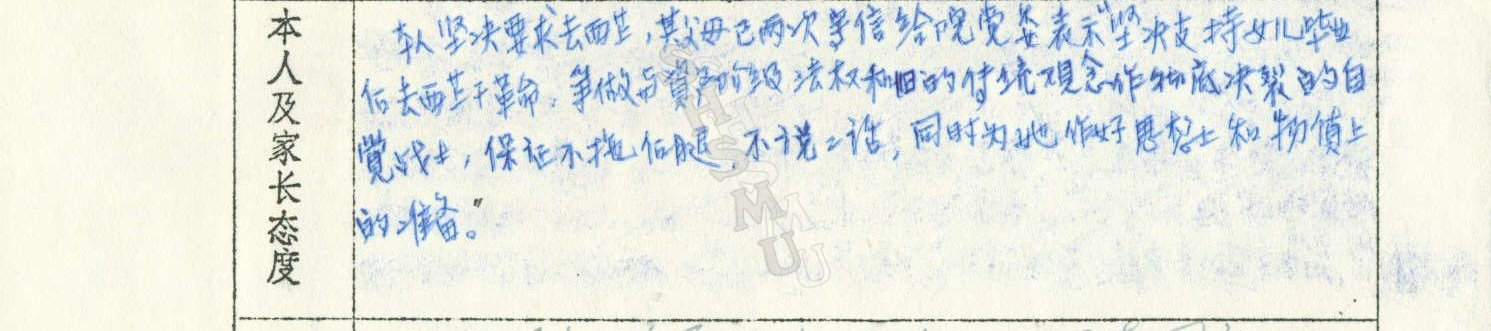 本人及家长态度
本人坚决要求去西芷,其父母已两次写信给院党委表示"坚决支持女儿毕业
后去西芷干革命,争做与資产阶级法权和旧的传统观念作彻底决裂的自
覚战士,保证不拖后腿,不说二话,同时为她作好思想上和物质上
的准备。"
SHSMU